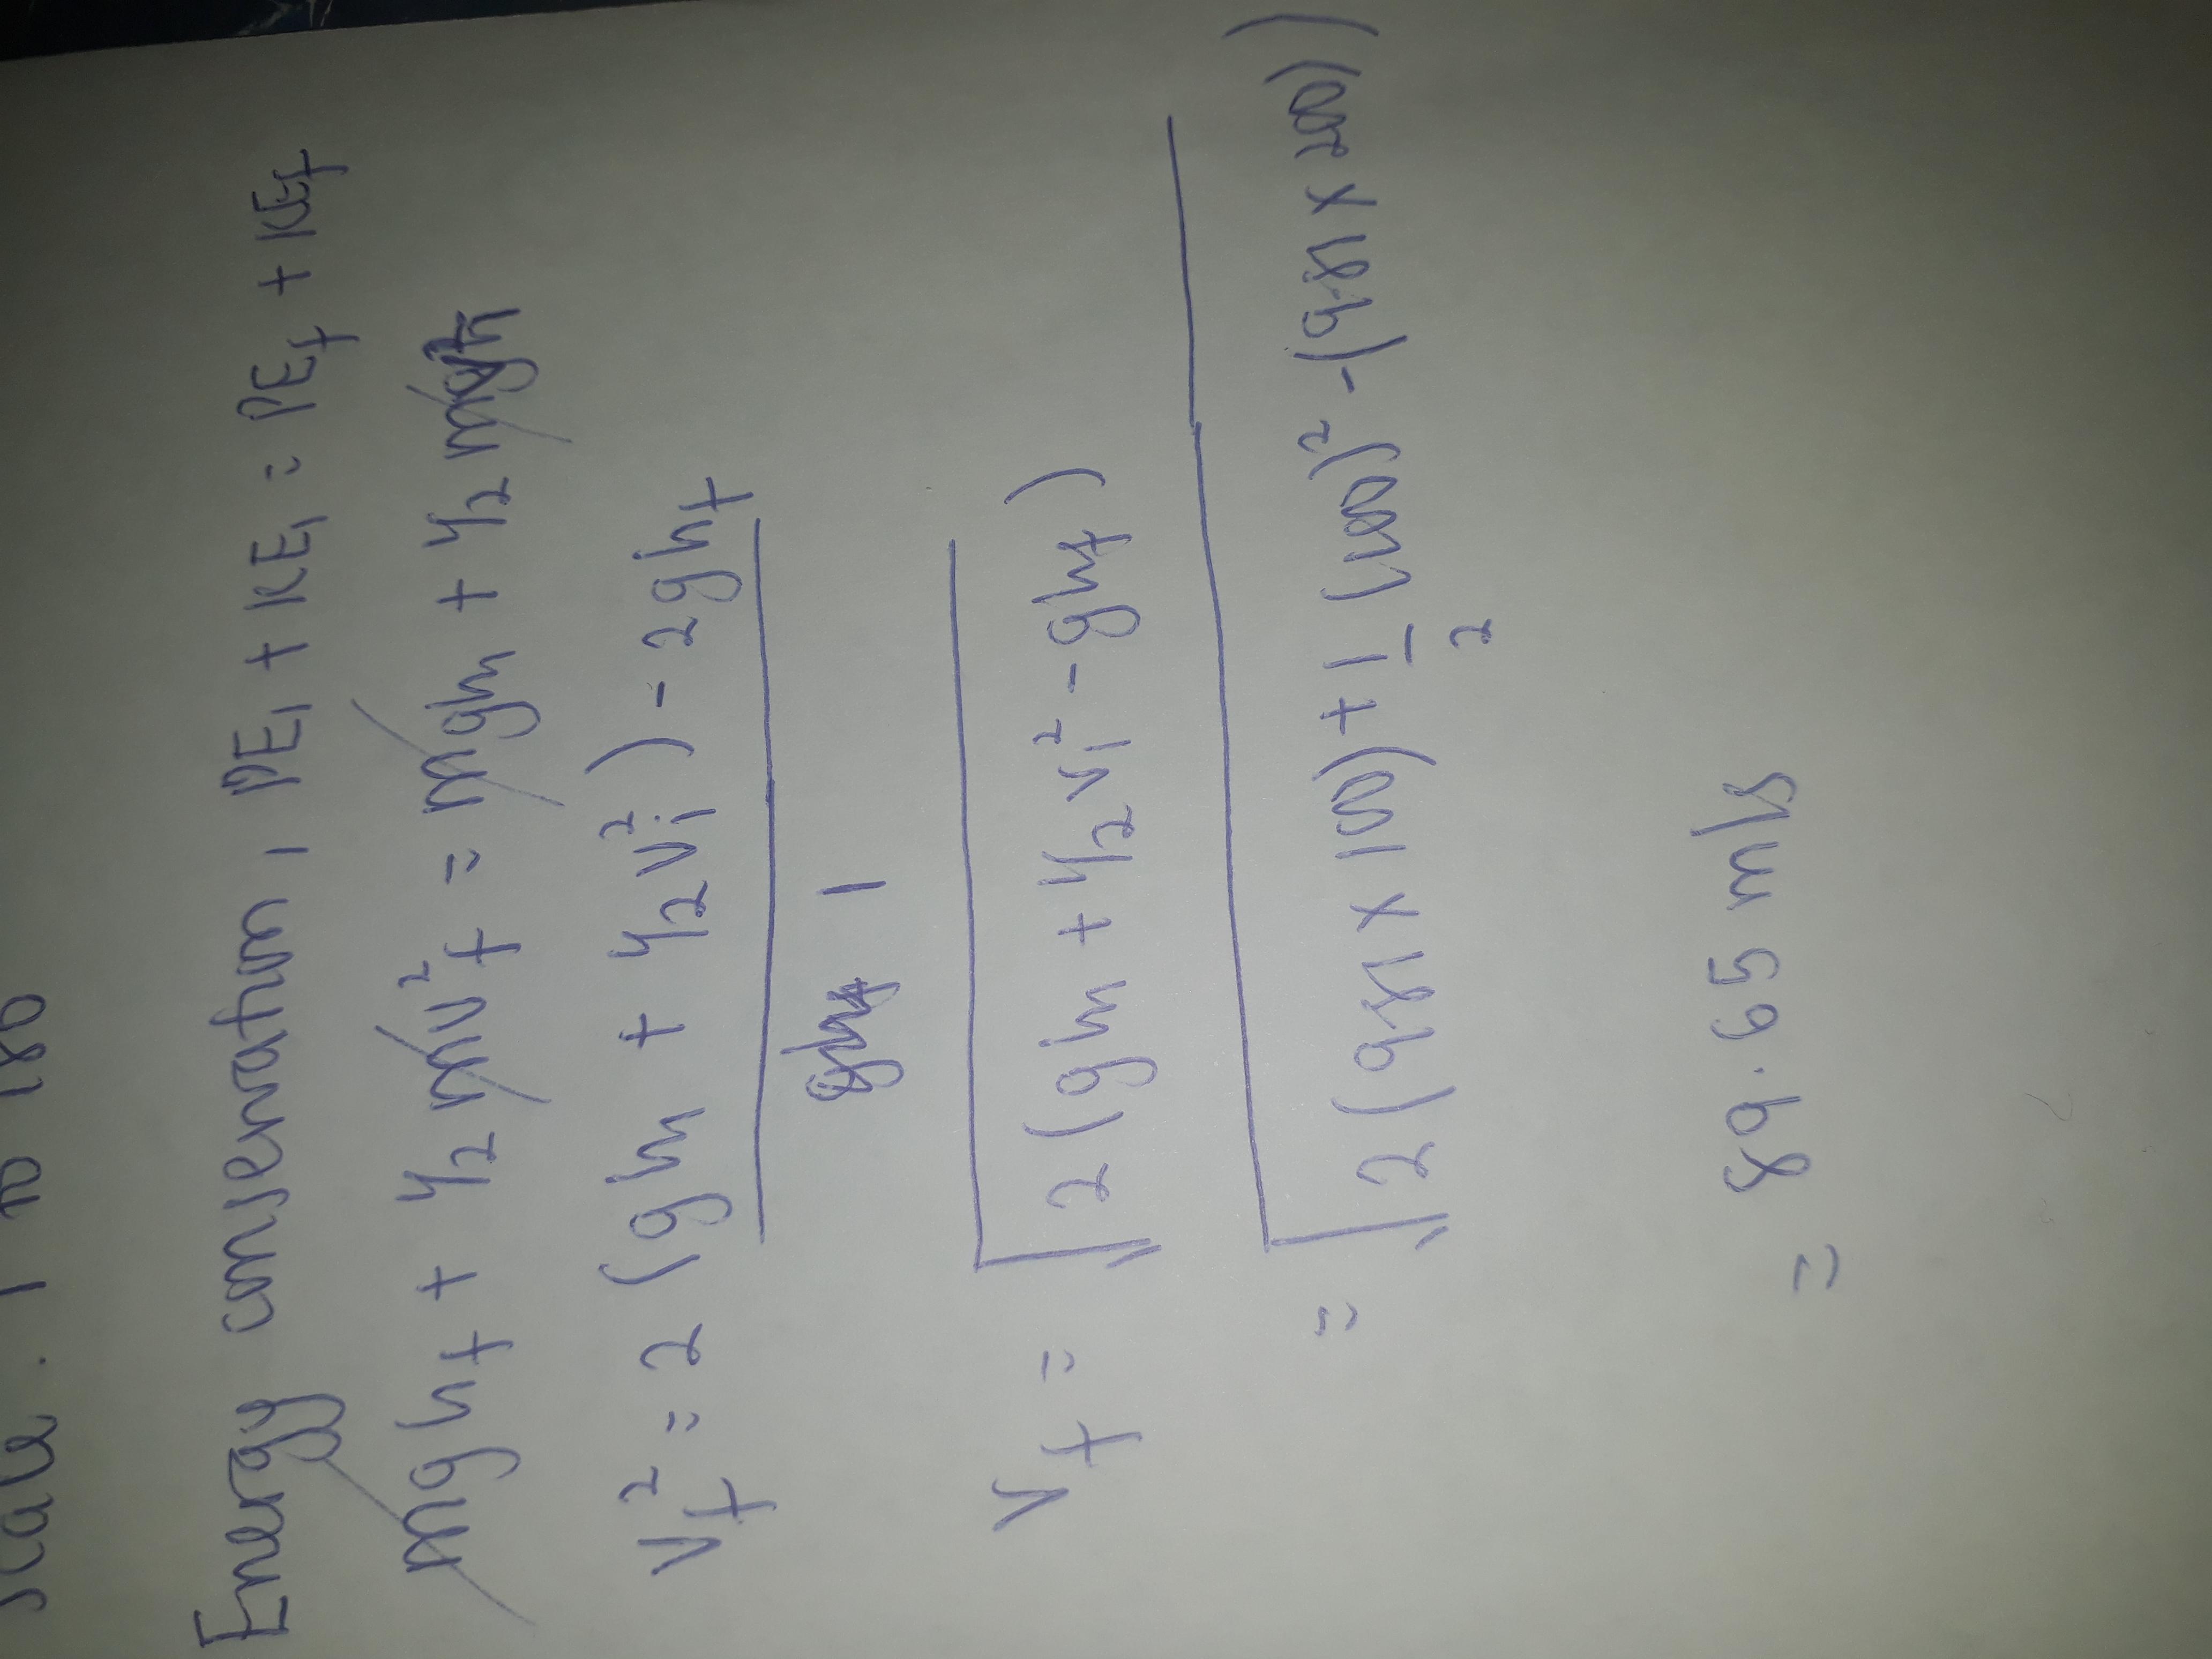 scale . 1 to 180
Energy conservation 1 PE₁ + KE₁ = PEf + KEf
mghf + 1/2 mv²f = mgh₁ + 1/2 m
vf² = 2 (gh₁ + 1/2 vi²) - 2ghf
1
vf = √2 (gh₁ + 1/2 vi² - ghf)
= √2 (9.81 x 100) + 1/2 (100)² - (9.81 x 200))
= 89.65 m/s